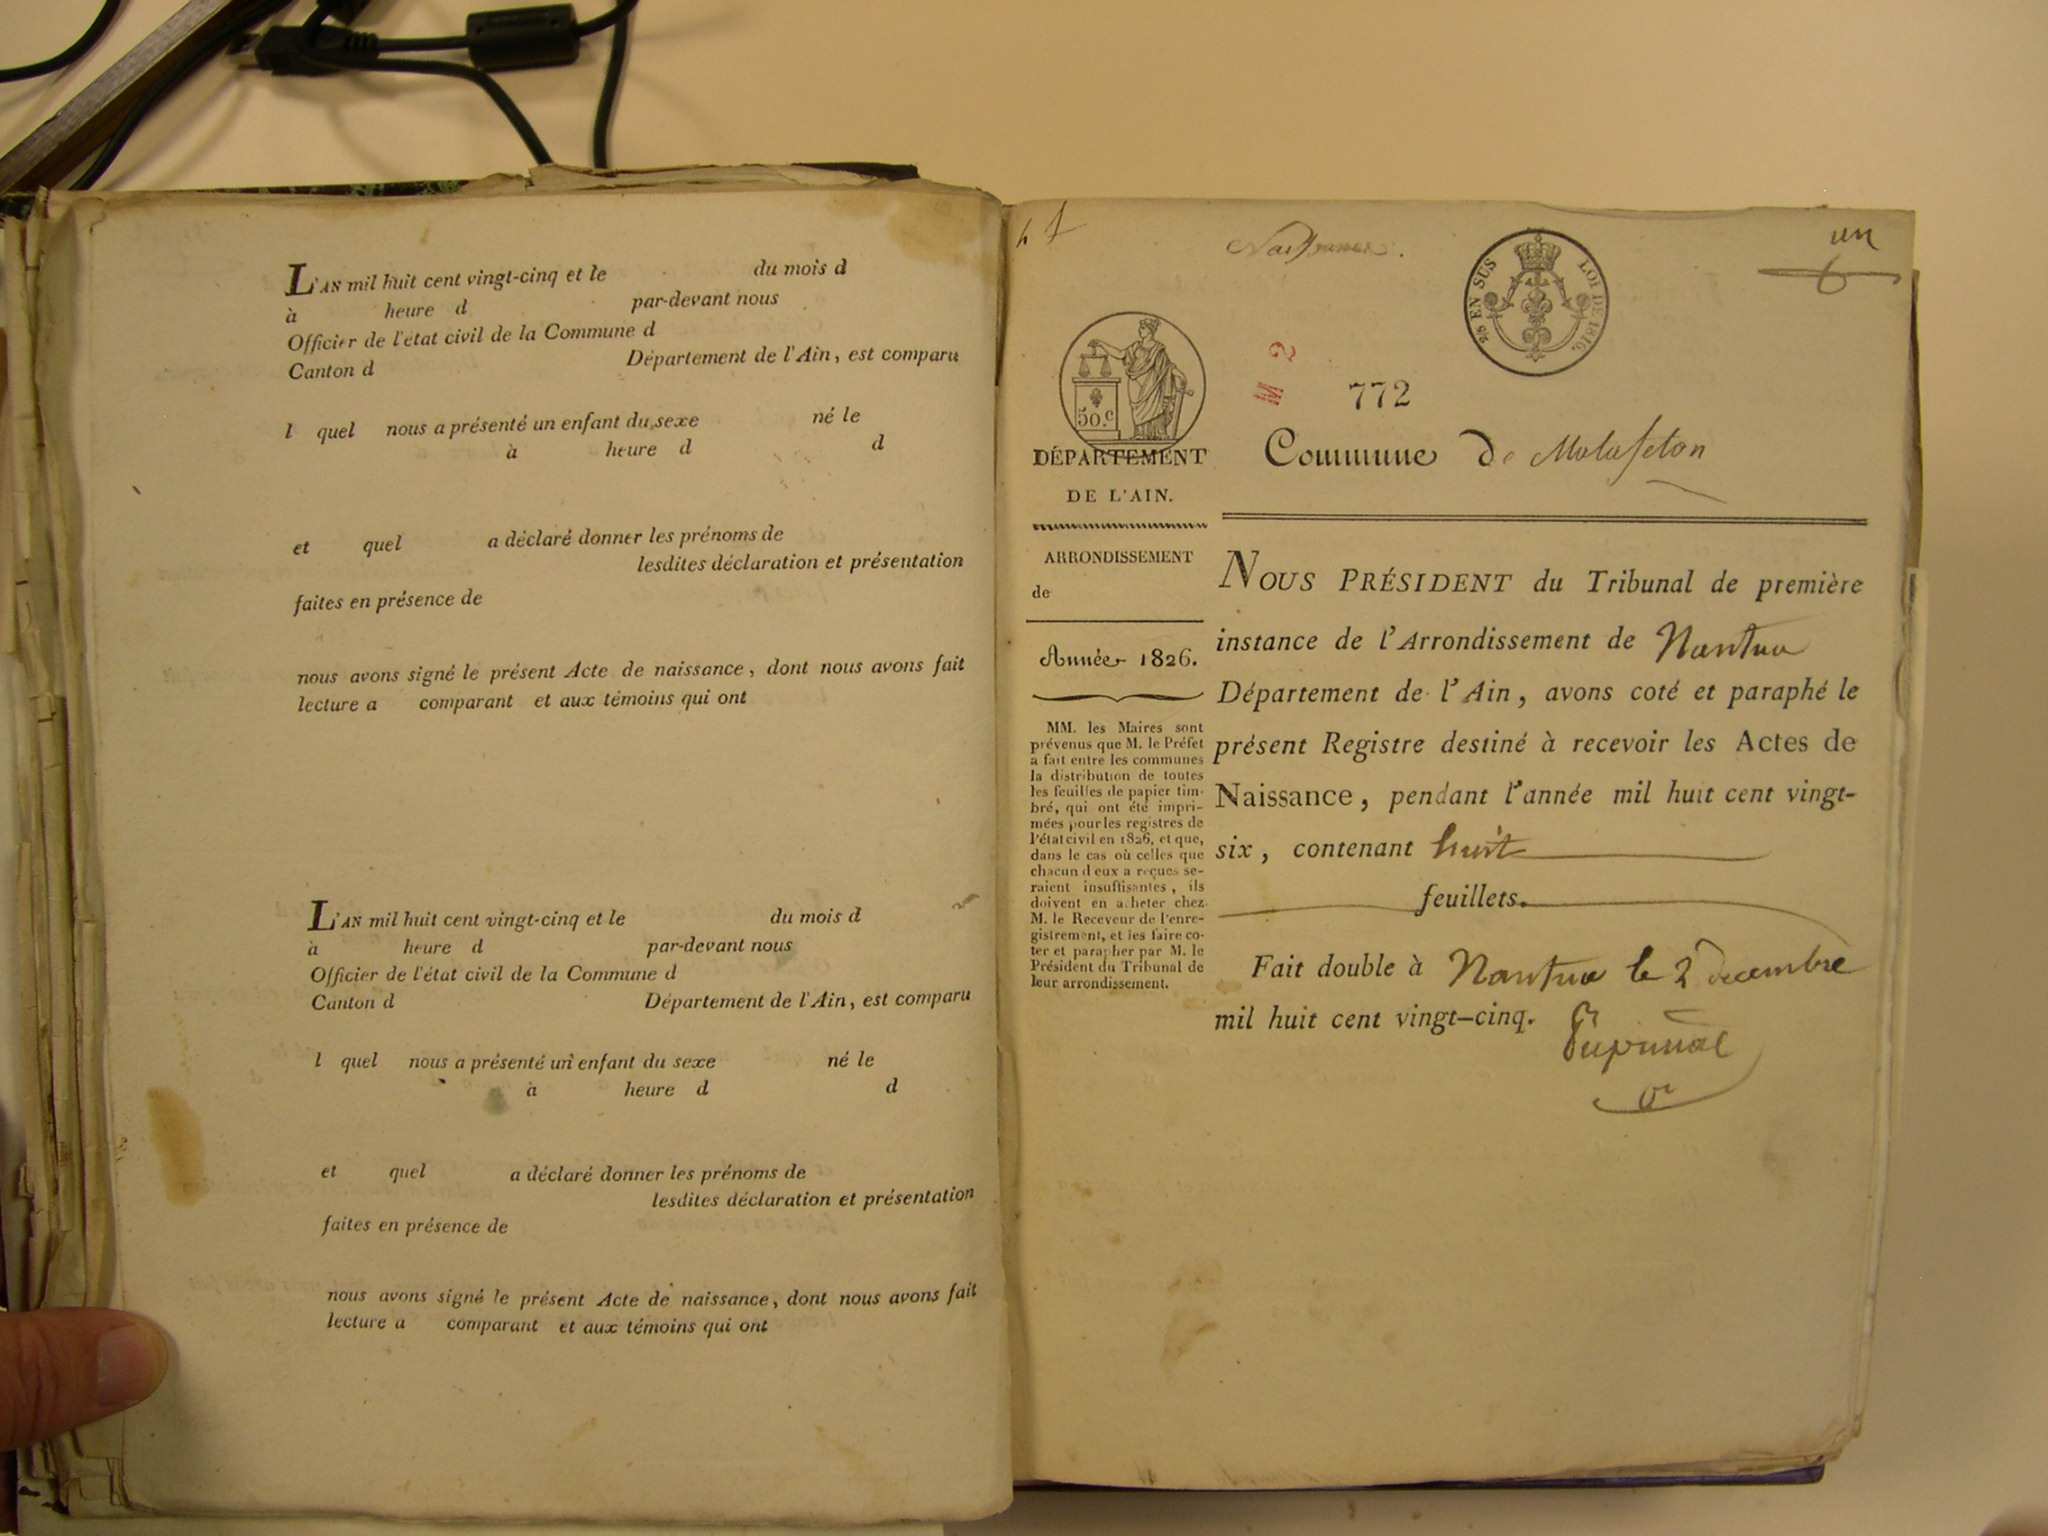 L'AN mil huit cent vingt-cinq et le du mois d
à heure d par-devant nous
Officier de l'état civil de la Commune d
Canton d Département de l'Ain, est comparu
l quel nous a présenté un enfant du sexe né le
à heure d d
et quel a déclaré donner les prénoms de
lesdites déclaration et présentation
faites en présence de
nous avons signé le présent Acte de naissance, dont nous avons fait
lecture a comparant et aux témoins qui ont
L'AN mil huit cent vingt-cinq et le du mois d
à heure d par-devant nous
Officier de l'état civil de la Commune d
Canton d Département de l'Ain, est comparu
l quel nous a présenté un enfant du sexe né le
à heure d d
et quel a déclaré donner les prénoms de
lesdites déclaration et présentation
faites en présence de
nous avons signé le présent Acte de naissance, dont nous avons fait
lecture a comparant et aux témoins qui ont
un
EN SUS LOI DE 1816.
50.c
772
DÉPARTEMENT
DE L'AIN.
Commune de
ARRONDISSEMENT
de
Année 1826.
MM. les Maires sont
prévenus que M. le Préfet
a fait entre les communes
la distribution de toutes
les feuilles de papier tim-
bré, qui ont été impri-
mées pour les registres de
l'état civil en 1826, et que,
dans le cas où celles que
chacun d'eux a reçues se-
raient insuffisantes, ils
doivent en acheter chez
M. le Receveur de l'enre-
gistrement, et les faire co-
ter et parapher par M. le
Président du Tribunal de
leur arrondissement.
NOUS PRÉSIDENT du Tribunal de première
instance de l'Arrondissement de Nantua
Département de l'Ain, avons coté et paraphé le
présent Registre destiné à recevoir les Actes de
Naissance, pendant l'année mil huit cent vingt-
six, contenant huit
feuillets.
Fait double à Nantua le 2 decembre
mil huit cent vingt-cinq.